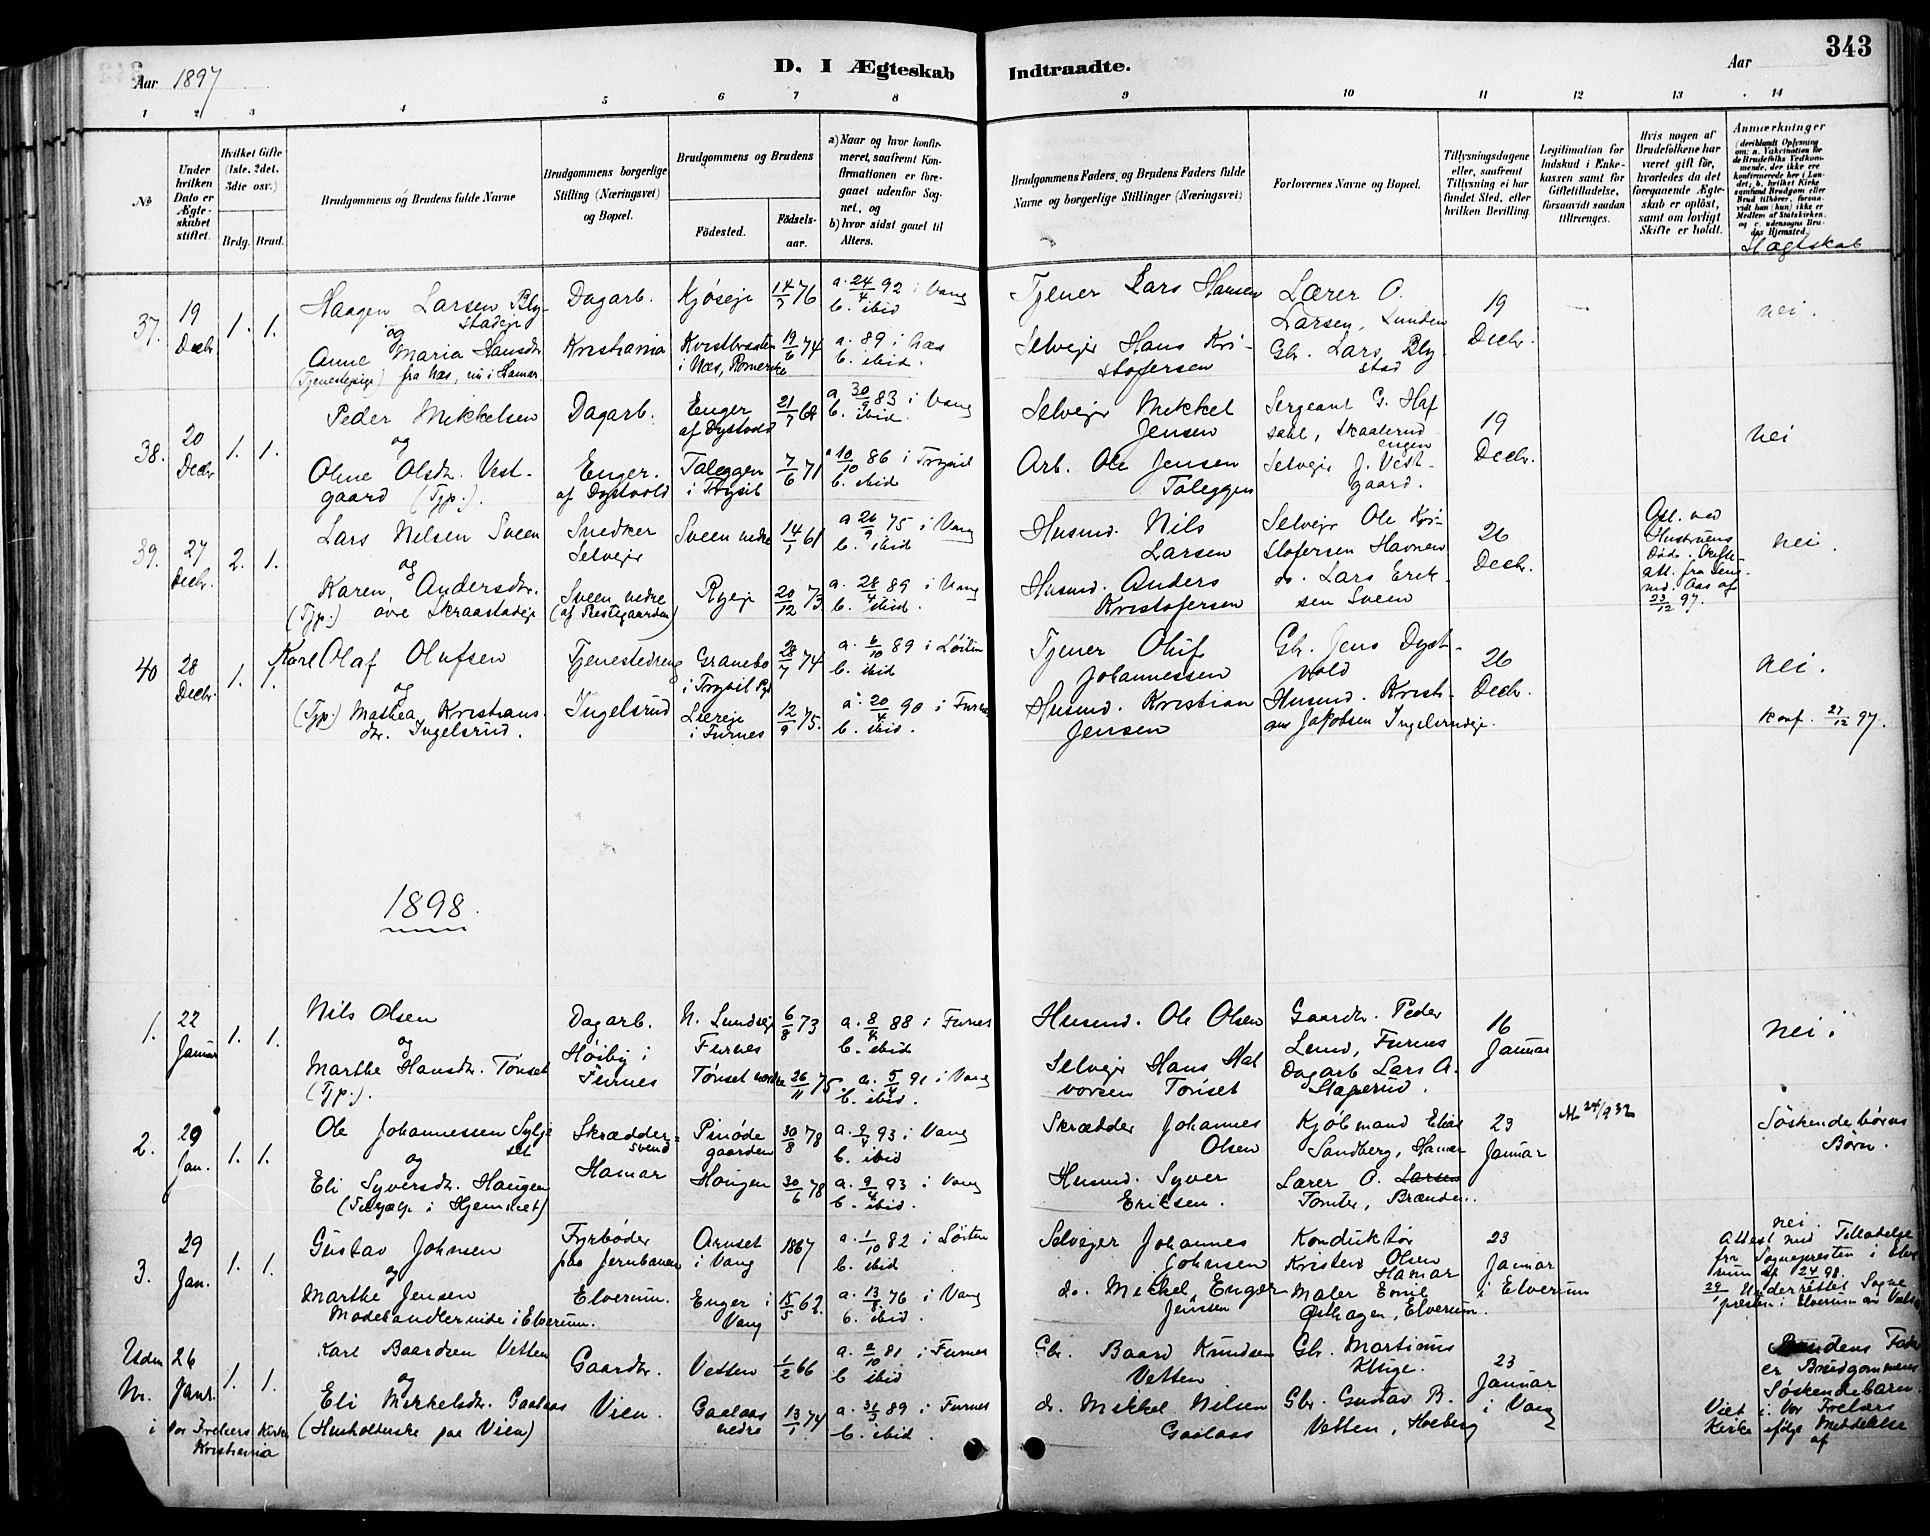 Aar 1897
D. I Ægteskab Indtraadte.
Aar
343
1 2 3 4 5 6 7 8 9 10 11 12 13 14
No
Under hvilken Dato er Ægteskabet stiftet.
Hvilket Gifte (1ste, 2det, 3die osv.)
Brdg. Brud.
Brudgommens og Brudens fulde Navne
Brudgommens borgerlige Stilling (Næringsvei) og Bopæl.
Brudgommens og Brudens
Fødested.
Fødselsaar.
a) Naar og hvor konfirmeret, saafremt Konfirmationen er foregaaet udenfor Sognet, og
b) hvor sidst gaaet til Alters.
Brudgommens Faders, og Brudens Faders fulde Navne og borgerlige Stillinger (Næringsvei)
Forlovernes Navne og Bopæl.
Tillysningsdagene eller, saafremt Tillysning ei har fundet Sted, efter hvilken Bevilling.
Legitimation for Indskud i Enkekassen samt for Giftetilladelse, forsaavidt saadan tiltrænges.
Hvis nogen af Brudefolkene har været gift før, hvorledes da det foregaaende Ægteskab er opløst, samt om lovligt Skifte er holdt.
Anmærkninger
Slægtskab
37. 19 Decbr 1. 1.
Haagen Larsen Blystadeje
og
Anne Maria Hansdr.
(Tjenestepige) fra Næs, nu i Hamar.
Dagarb.
Kristiania
Kjøseje
i Næs, Romerike
14/7 76
19/6 74
a. 24/4 92 i Vang
b. ibid
a. 89 i Næs
b. ibid.
Tjener Lars Hansen
Selvejer Hans Kristofersen
Lærer O. Larsen, Lunden
Gbr. Lars Blystad
19 Decbr.
nei.
38. 20 Decbr 1. 1.
Peder Mikkelsen
og
Oline Olsdr. Vestgaard (Tjp.).
Dagarb.
Enger. af Dystvold
Enger af Dystvold
Taleggen i Trysil
21/7 68
7/6 71
a. 30/9 83 i Vang
b. ibid.
a 10/10 86 i Trysil
b. ibid
Selvejer Mikkel Jensen
Arb. Ole Jensen Taleggen
Sergeant G. Hafsahl, Skaalerudengen
Selvejer J. Vestgaard.
19 Decbr.
nei
39. 27 Decbr. 2. 1.
Lars Nilsen Sveen
og
Karen Andersdr.
(Tjp.) øvre Skraastadeje
Snedker Selvejer
Sveen nedre
(af Prestegaarden)
Sveen nedre
Ryeje
14/1 61
20/12 73
a 26/9 75 i Vang
b. ibid
a. 28/4 89 i Vang
b. ibid.
Husmd. Nils Larsen
Husmd. Anders Kristofersen
Selvejer Ole Kristofersen Havnen
do. Lars Eriksen Sveen
26 Decbr.
Opl. ved Hustruens Død. Skifteatt. fra Lensmd. Aas af 23/12 97.
nei.
40 28 Decbr. 1. 1.
Karl Olaf Olufsen
og
(Tjp.) Mathea Kristiansdr. Ingelsrud.
Tjenestedreng
Ingelsrud
Granebo i Trysil
Liereje i Furnes
28/7 74
12/9 75.
a. 6/10 89 i Løiten
b. ibid
a. 20/4 90 i Furnes
b. ibid.
Tjener Oluf Johannessen
Husmd. Kristian Jensen
Gbr. Jens Dystvold
Husmd. Kristian Jakobsen Ingelsrudeje.
26 Decbr.
nei.
konf. 27/12 97.
1898.
1. 22 Januar 1. 1.
Nils Olsen
og
Marthe Hansdr. Tønset
(Tjp.).
Dagarb.
Høiby i Furnes
N. Lundseje Furnes
Tønset nordre
6/8 73
26/11 75.
a. 8/4 88 i Furnes
b. ibid
a. 5/4 91 i Vang
b. ibid.
Husmd. Ole Olsen
Selvejer Hans Halvorsen Tønset
Gaardbr. Peder Lund, Furnes
Dagarb Lars A. Slaperud.
16 Januar
nei.
2. 29 Jan. 1. 1.
Ole Johannessen Syljeset
og
Eli Syversdr. Haugen
(Tilhjælp i Hjemmet)
Skræddersvend
Hamar
Pinødegaarden
Haugen
30/8 78
30/6 78
a. 9/4 93 i Vang
b. ibid
a. 9/4 93 i Vang
b. ibid.
Skrædder Johannes Olsen
Husmd. Syver Eriksen.
Kjøbmand Elias Sandberg, Hamar
Lærer O. Larsen Tomter, Brænden.
23 Januar
Søskendebørns Børn.
3. 29 Jan. 1. 1.
Gustav Johnsen
og
Marthe Jensen
Modehandlerinde i Elverum.
Fyrbøder paa Jernbanen
Elverum.
Arnset i Vang
Enger i Vang
1867
15/5 62.
a. 1/10 82 i Løiten
b. ibid
a. 13/8 76 i Vang
b. ibid.
Selvejer Johannes Johnsen
do. Mikkel Enger Jensen
Konduktør Kristen Olsen Hamar
Maler Emil Østhagen, Elverum.
23 Januar i Elverum
nei.
Attest med Tilladelse fra Sognepresten i Elverum
Udn Nr. 26 Janr. 1. 1.
i Vor Frelsers Kirke Kristiania
Karl Baardsen Vetten
og
Eli Mikkelsdr. Gaalaas
(Husholderske paa Vien)
Gaardbr.
Vien.
Vetten
Gaalaas nedre
1/2 66
13/1 74
a. 2/10 81 i Furnes
b ibid
a. 31/3 89 i Furnes
b. ibid.
Gbr. Baard Knudsen Vetten
do. Mikkel Nilsen Gaalaas
Gbr. Martinus Kluge.
Gbr. Gustav B. Vetten, Hoberg
23 Januar i Vang
Brudens Fader er Brudgommens Søskendebarn.
Viet i Vor Frelsers Kirke ifølge Meddelelse af